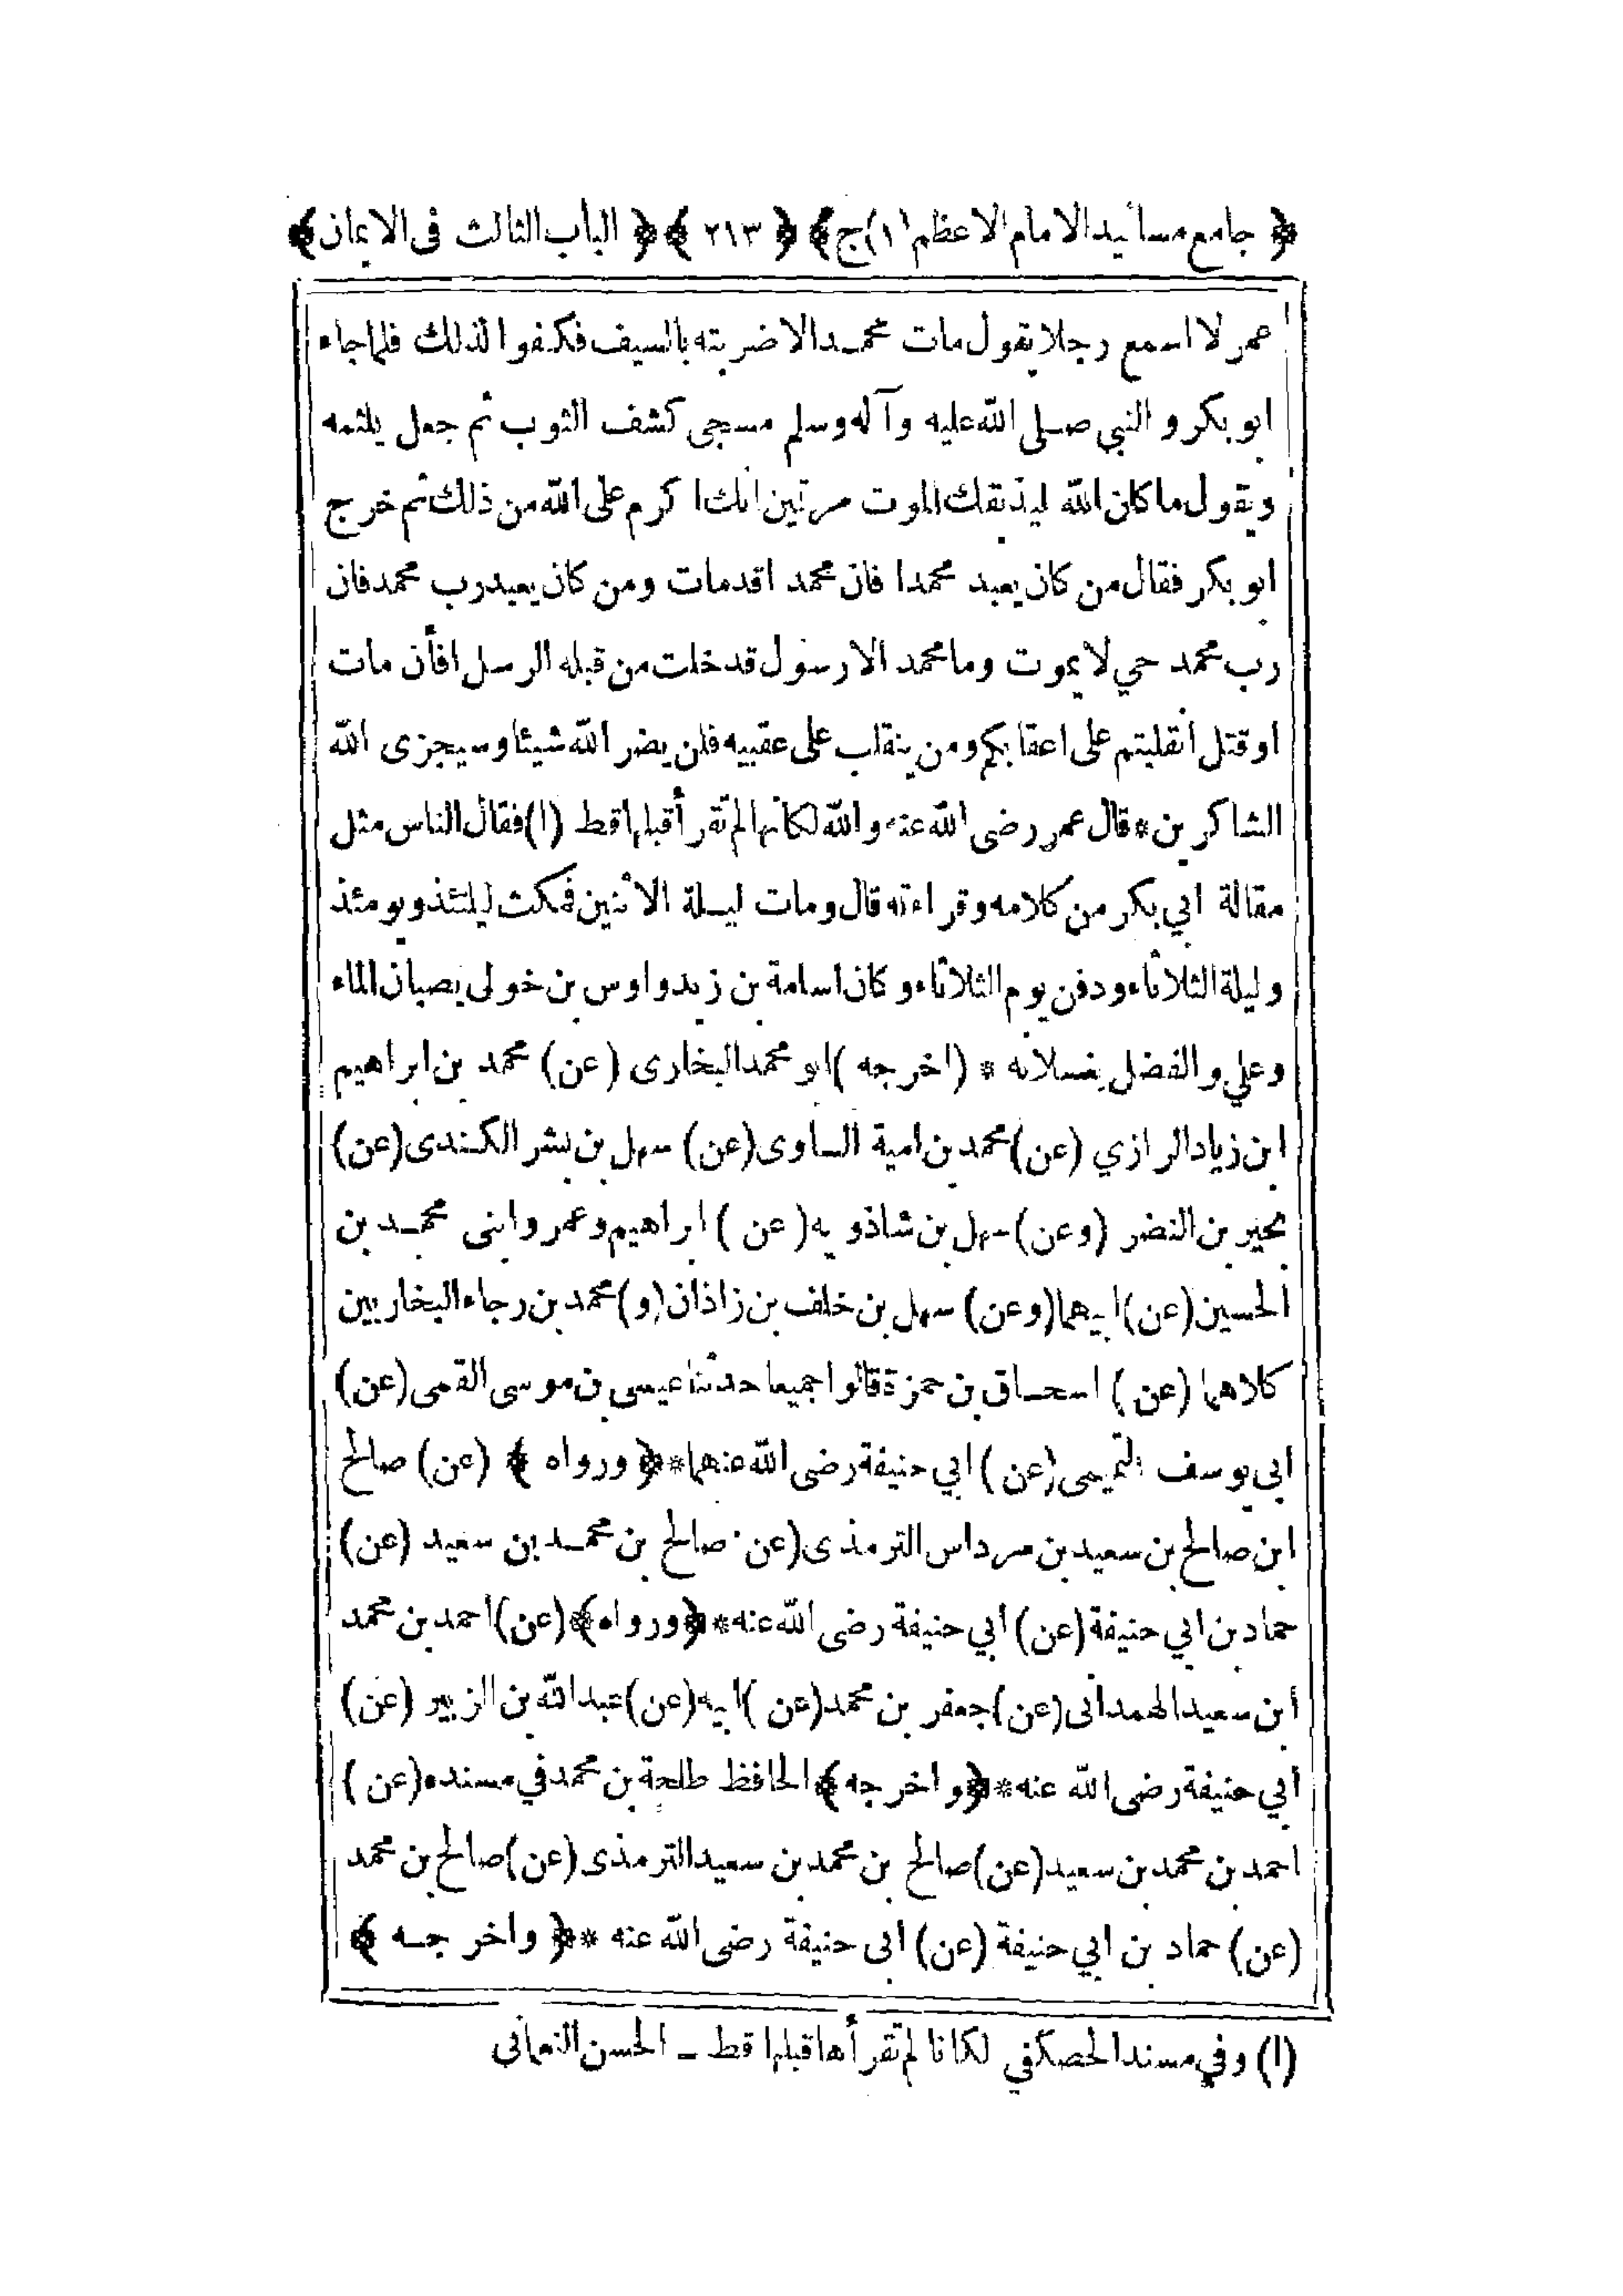 ﴿ جامع مسانيد الامام الاعظم (١) ج ﴾ ﴿ ٢١٣ ﴾ ﴿ الباب الثالث فى الايمان ﴾
عمر لا اسمع رجلا يقول مات محمد الا ضربته بالسيف فكفوا لذلك فلما جاء
ابو بكر و النبي صلى الله عليه وآله وسلم مسجى كشف الثوب ثم جعل يلثمه
ويقول ما كان الله ليذيقك الموت مرتين انك اكرم على الله من ذلك ثم خرج
ابو بكر فقال من كان يعبد محمدا فان محمد اقدمات ومن كان يعبد رب محمد فان
رب محمد حي لا يموت وما محمد الا رسول قد خلت من قبله الرسل افأن مات
او قتل انقلبتم على اعقابكم ومن ينقلب على عقبيه فلن يضر الله شيئا وسيجزى الله
الشاكرين * قال عمر رضى الله عنه والله لكانها لم تقرأ قبلها قط (١) فقال الناس مثل
مقالة ابي بكر من كلامه وقراءته قال ومات ليلة الاثنين فمكث ليلتئذ ويومئذ
وليلة الثلاثاء ودفن يوم الثلاثاء وكان اسامة بن زيد واوس بن خولى يصبان الماء
وعلي و الفضل يغسلانه * (اخرجه) ابو محمد البخارى (عن) محمد بن ابراهيم
ابن زياد الرازي (عن) محمد بن امية الساوى (عن) سهل بن بشر الكندى (عن)
بحير بن النضر (وعن) سهل بن شاذويه (عن) ابراهيم وعمرو ابنى محمد بن
الحسين (عن) ابيهما (وعن) سهل بن خلف بن زاذان (و) محمد بن رجاء البخاريين
كلاهما (عن) اسحاق بن حمزة قالوا جميعا حدثنا عيسى بن موسى القمى (عن)
ابى يوسف التميمى (عن) ابي حنيفة رضى الله عنهما * ﴿ ورواه ﴾ (عن) صالح
ابن صالح بن سعيد بن مرداس الترمذى (عن) صالح بن محمد بن سعيد (عن)
حماد بن ابي حنيفة (عن) أبي حنيفة رضى الله عنه * ﴿ ورواه ﴾ (عن) احمد بن محمد
ابن سعيد الهمدانى (عن) جعفر بن محمد (عن) ابيه (عن) عبد الله بن الزبير (عن)
أبي حنيفة رضى الله عنه * ﴿ واخرجه ﴾ الحافظ طلحة بن محمد في مسنده (عن)
احمد بن محمد بن سعيد (عن) صالح بن محمد بن سعيد الترمذى (عن) صالح بن محمد
(عن) حماد بن ابي حنيفة (عن) ابى حنيفة رضى الله عنه * ﴿ واخرجه ﴾
(١) وفي مسند الحصكفي لكانا لم تقرأها قبلها قط ــ الحسن النعمانى